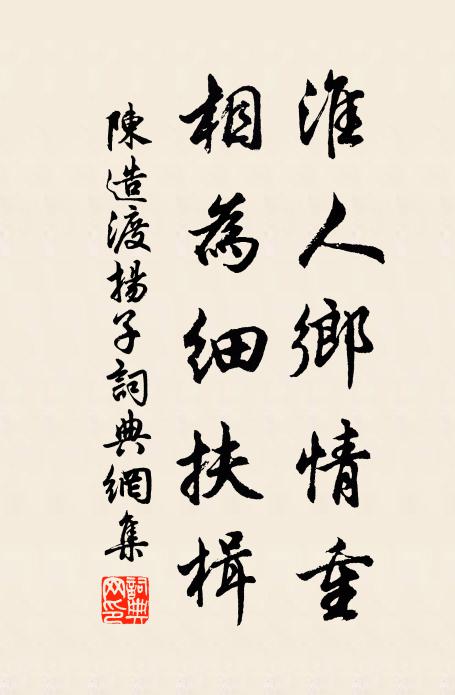 淮人鄉情重
相為細扶楫
陳造渡揚子詞典網集
詞典網印